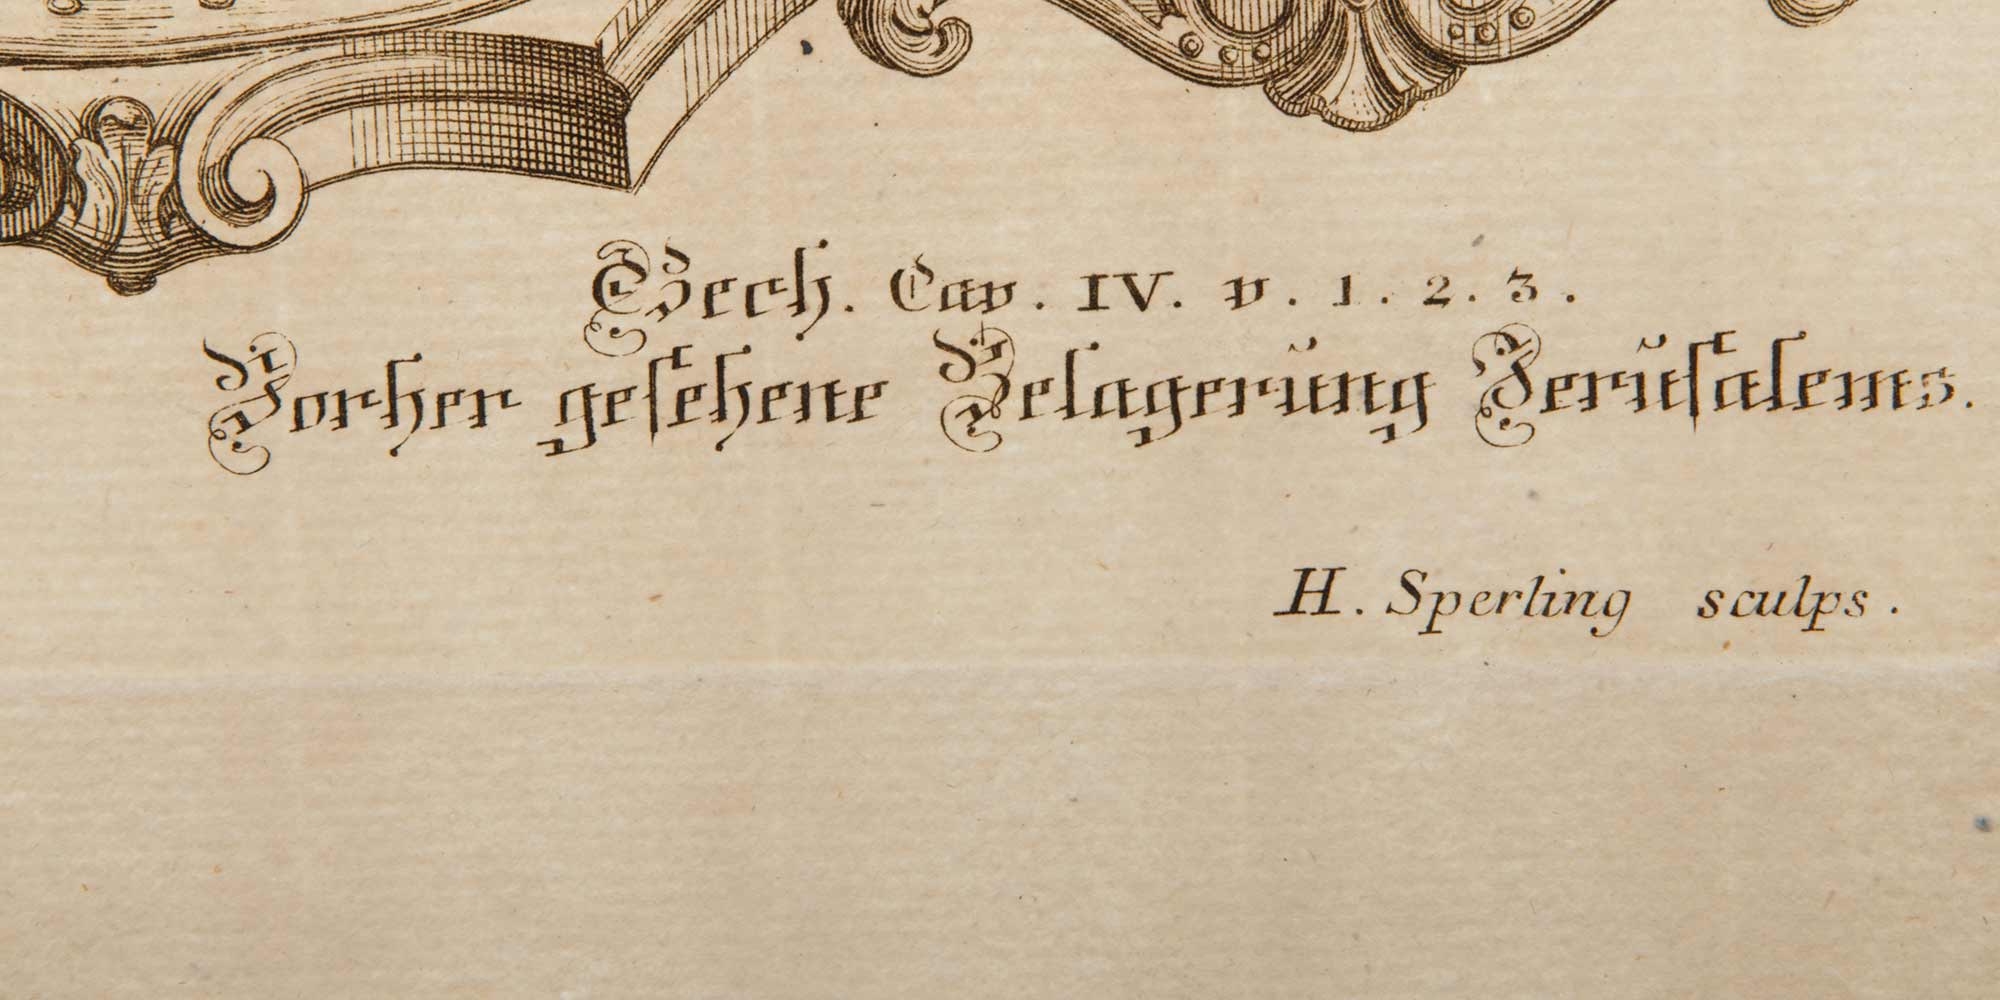 Ezech. Cap. IV. v. 1. 2. 3.
Vorher gesehene Belagerŭng Jerŭsalems.
H. Sperling sculps.